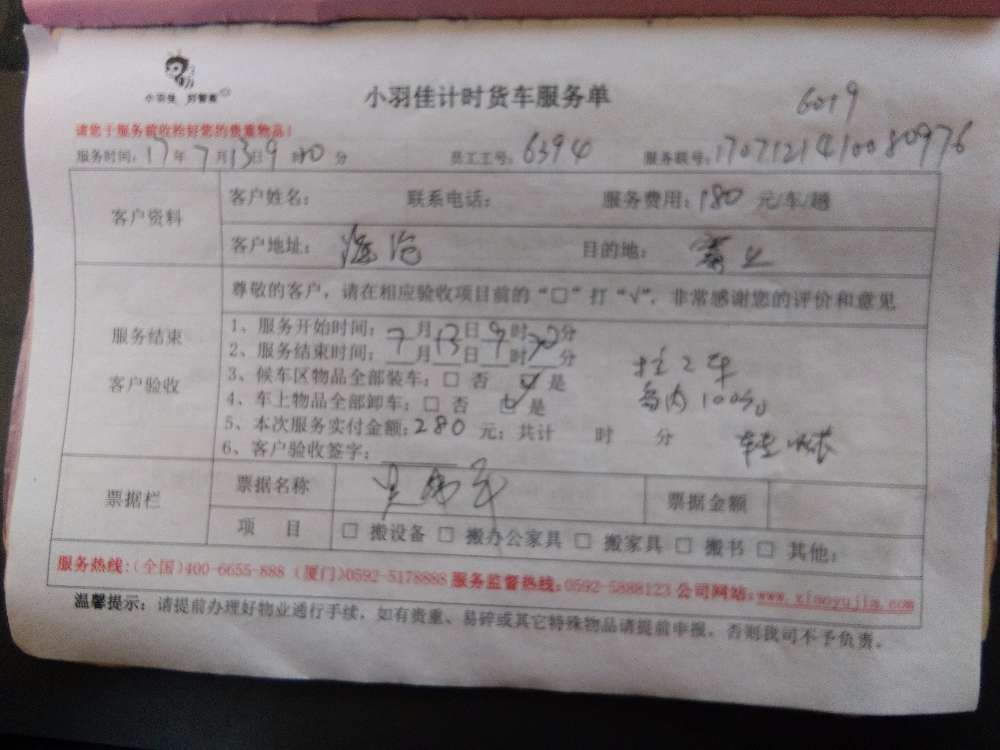 小羽佳 好管家
小羽佳计时货车服务单
6019
请您于服务前收检好您的贵重物品！
服务时间：17年7月13日9时30分 员工工号：6394 服务联号：1707121410080976
客户资料
客户姓名： 联系电话： 服务费用：180 元/车/趟
客户地址：海沧 目的地：
服务结束
客户验收
尊敬的客户，请在相应验收项目前的“□”打“√”，非常感谢您的评价和意见
1、服务开始时间：7月13日9时30分
2、服务结束时间：7月13日9时30分
3、候车区物品全部装车：□ 否 ☑ 是
4、车上物品全部卸车：□ 否 ☑ 是
5、本次服务实付金额：280 元；共计 时 分
6、客户验收签字：
2车
岛内100%
票据栏
票据名称 票据金额
项 目 □ 搬设备 □ 搬办公家具 □ 搬家具 □ 搬书 □ 其他：
服务热线：(全国)400-6655-888 (厦门)0592-5178888 服务监督热线：0592-5888123 公司网站：www.xiaoyujia.com
温馨提示：请提前办理好物业通行手续，如有贵重、易碎或其它特殊物品请提前申报，否则我司不予负责。